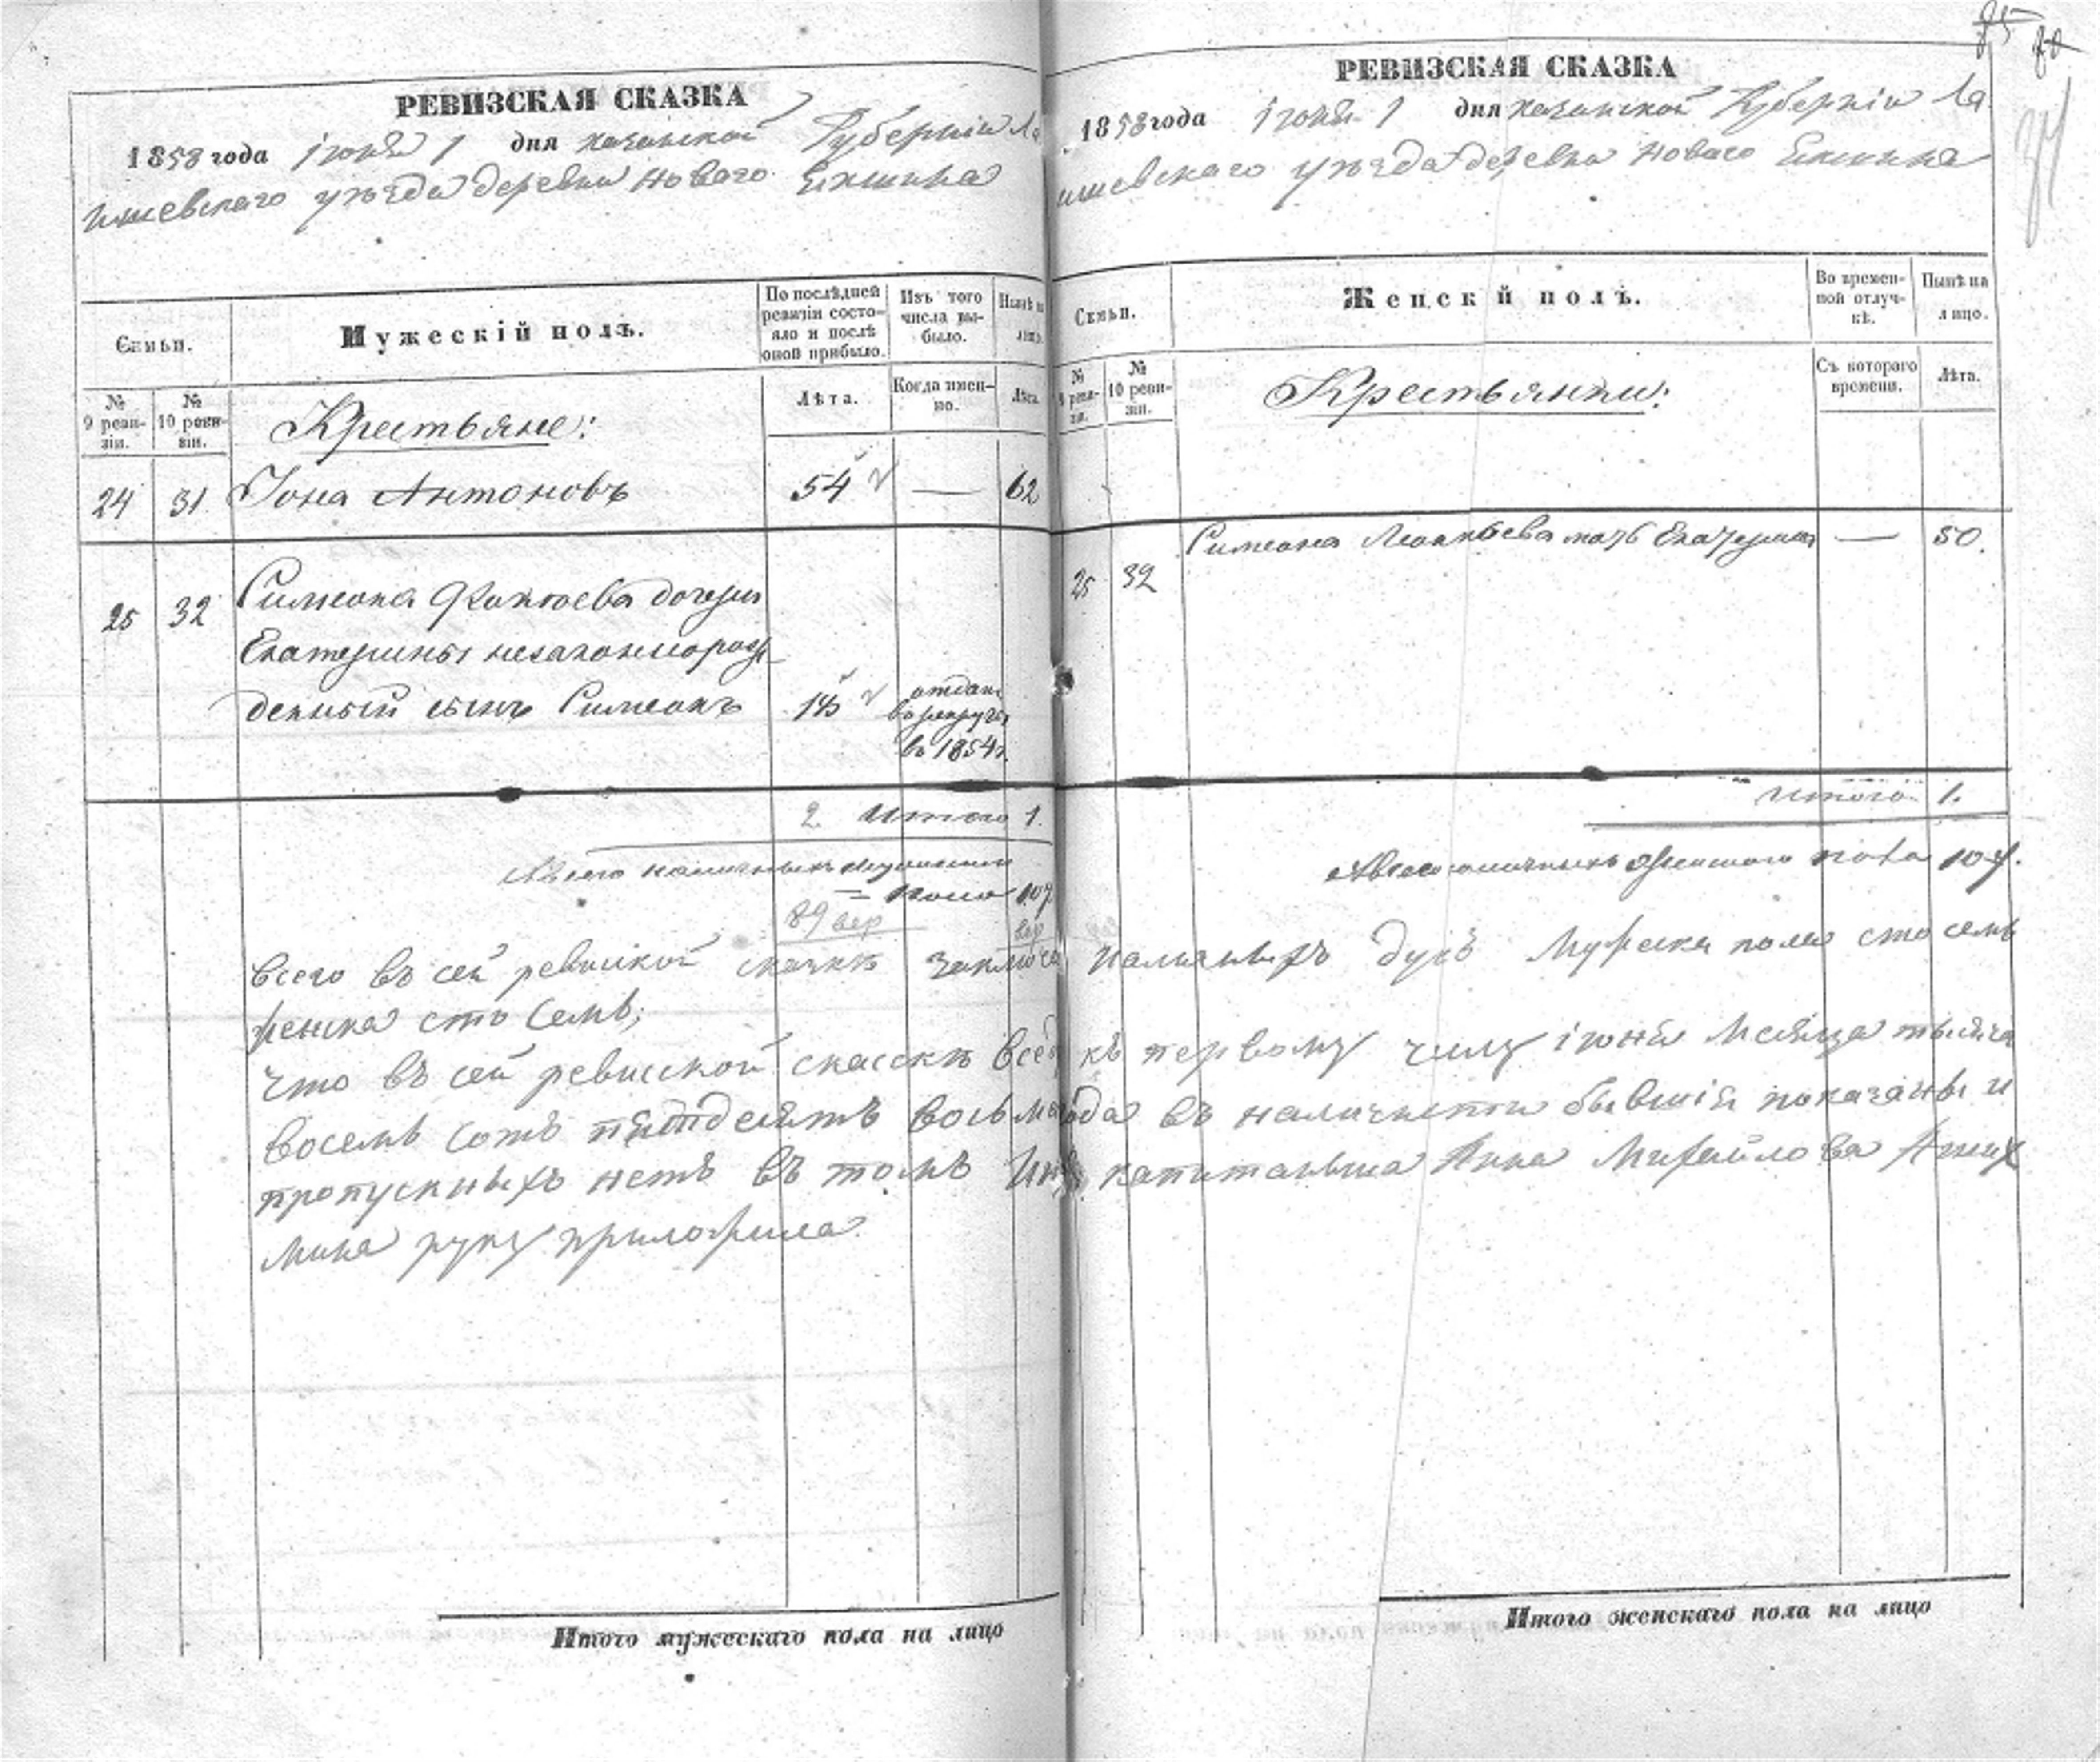 РЕВИЗСКАЯ СКАЗКА
1858 года іюня 1 дня казанской Губерніи Ла
ишевскаго уѣзда деревни Новаго Екшика
Семьи.
Мужескій полъ.
По послѣдней ревизіи состояло и послѣ оной прибыло.
Изъ того числа выбыло.
Нынѣ на лицо.
№ 9 ревизіи.
№ 10 ревизіи.
Крестьяне:
Лѣта.
Когда именно.
Лѣта.
24 31 Іона Антоновъ 54 — 62
25 32 Симеона дочери
Екатерины незаконнорож
денный сынъ Симеонъ
отданъ
въ рекруты
въ 1854 г.
2 Итого 1.
Всего наличныхъ мужескаго
= пола 107
89 вер
вер
РЕВИЗСКАЯ СКАЗКА
1858 года іюня 1 дня казанской Губерніи Ла
ишевскаго уѣзда деревни Новаго Екшика
Семьи.
Женскій полъ.
Во временной отлучкѣ.
Нынѣ на лицо.
№ 9 ревизіи.
№ 10 ревизіи.
Крестьянки:
Съ котораго времени.
Лѣта.
Симеона мать Екатерина — 50.
25 32
Итого 1.
Всего наличныхъ женскаго пола 107.
всего въ сей ревиской сказкѣ заключа наличныхъ душъ Мужска пола сто семь
женска сто семь;
что въ сей ревиской сказскѣ все къ первому числу іюня месяца тысяча
восемь сотъ пятдесятъ восьма года въ наличности бывшія показаны и
пропускныхъ нетъ въ томъ капитанша Анна Михайлова
мина руку приложила
Итого мужескаго пола на лицо
Итого женскаго пола на лицо